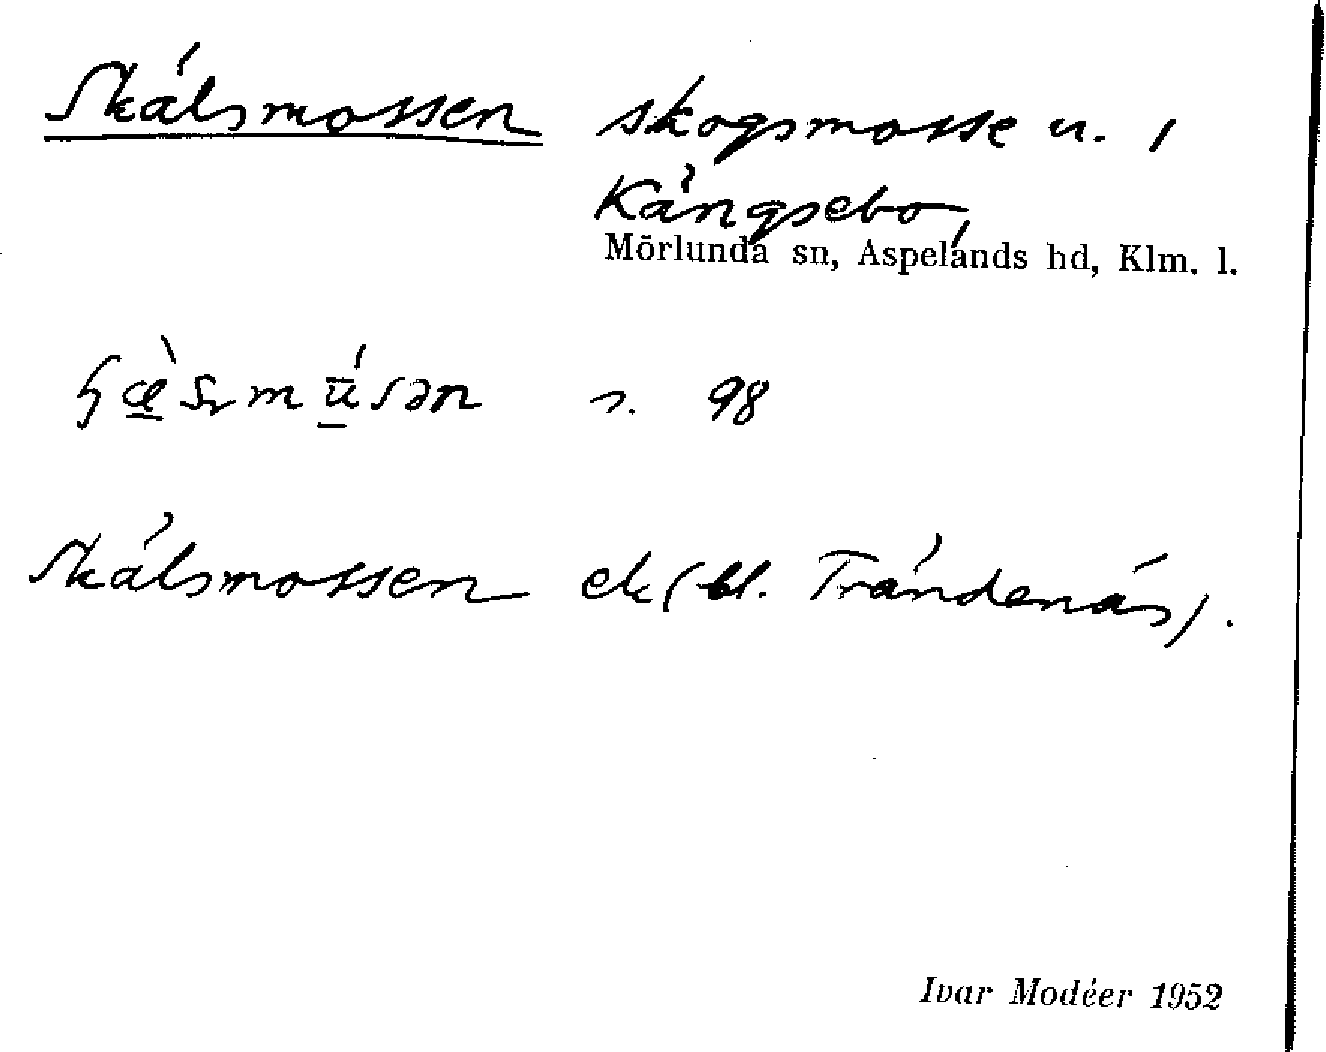 Skälsmossen skogsmosse u.
Kängsebo,
Mörlunda sn, Aspelands hd, Klm. l.
s. 98
Skälsmossen ek (bl. Trändenäs).
Ivar Modéer 1952